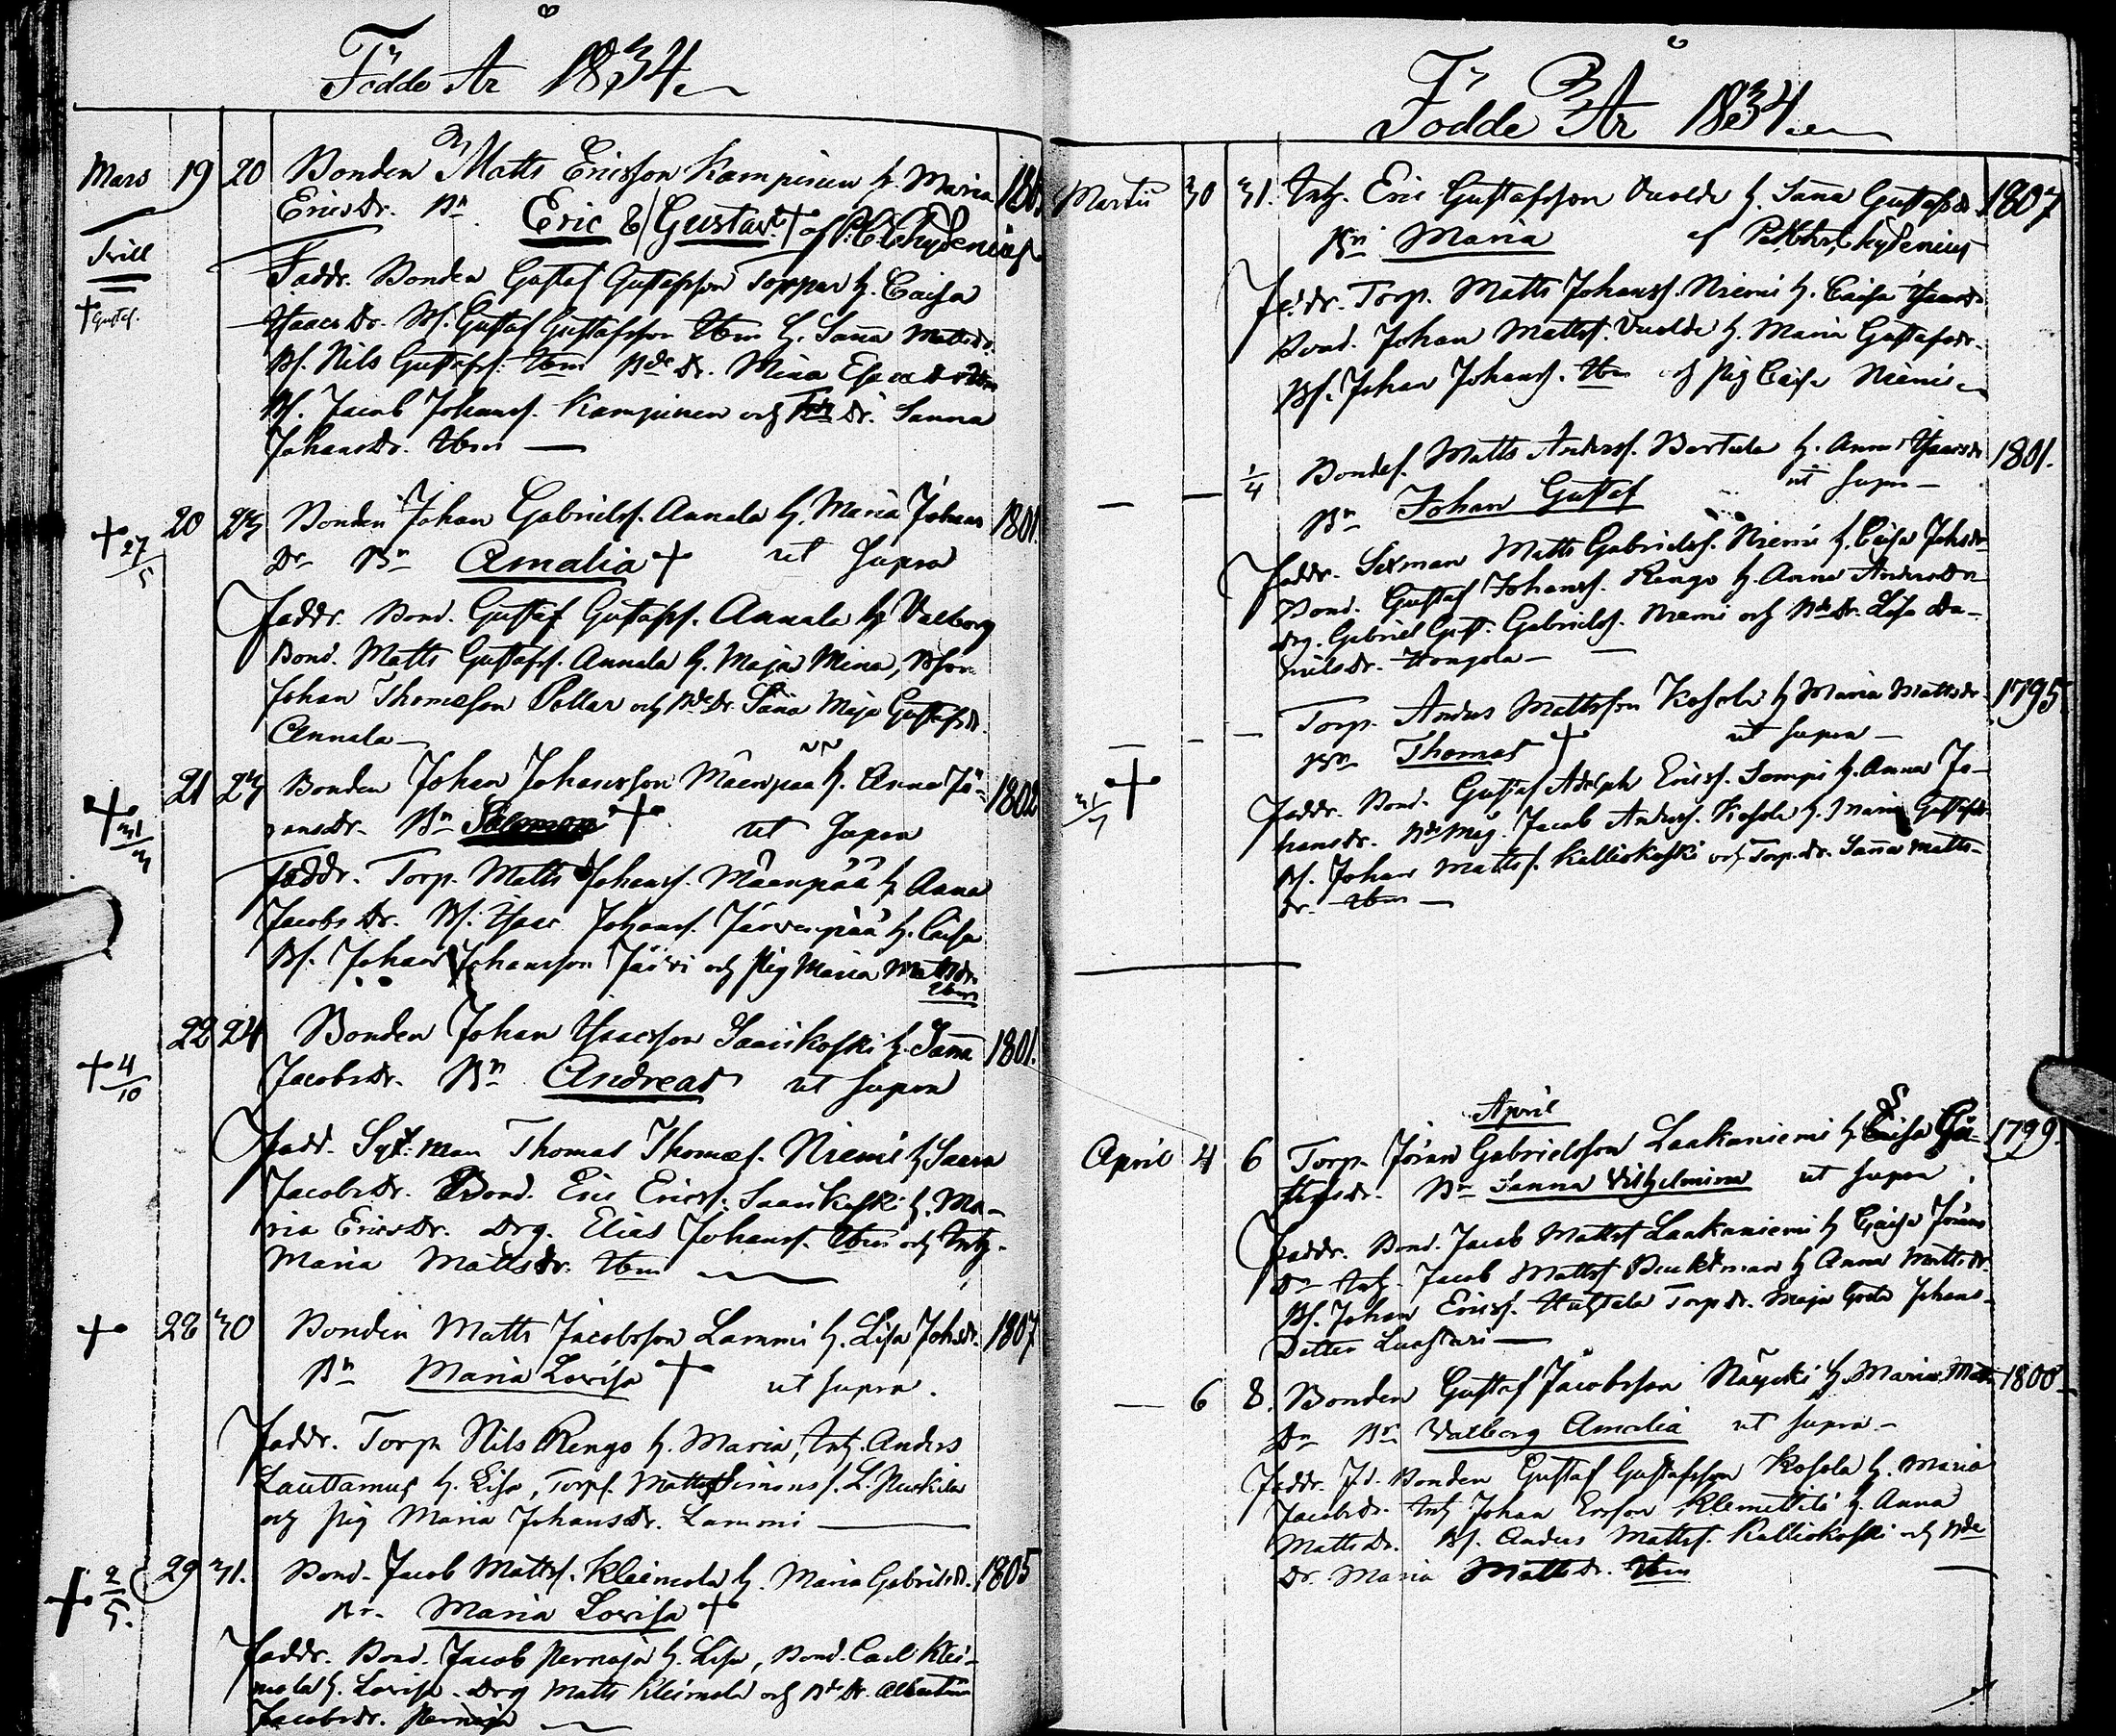 Födde År 1834
Mars 19 20 Bonden Matts Ericsson Kampinen h. Maria
Ericsdr. Bn Eric & Gustav † af Chydenius
Trill
† Gustaf.
Faddr. Bonden Gustaf Gustafsson Soppar h. Caisa
Isaacsdr. Bs. Gustaf Gustafsson Ibm h. Sanna Mattsdr.
Bs. Nils Gustafss. Ibm Bde Dr. Mina Ibm
Bs. Jacob Johanss. Kampinen och Dr. Sanna
Johansdr. Ibm
† 27/5 20 23 Bonden Johan Gabrielss. Annala h. Maria Johans 1801.
Dr Bn Amalia † ut supra
Faddr. Bond. Gustaf Gustafss. Annala h. Valborg
Bond. Matts Gustafss. Annala h. Maja Mina, Bson
Johan Thomasson Pollar och BdeDr. Sana Maja Gustafsdr.
Annala
† 31/3 21 23 Bonden Johan Johansson Mäenpää h. Anna Jo- 1802
hansdr. Bn Salomon † ut supra
Faddr. Torp. Matts Johanss. Mäenpää h. Anna
Jacobs Dr. Bs. Isaac Johanss. Järvenpää h. Caisa
Bs. Johan Johansson Järvi och Pig Maria Mattsdr.
Ibm
† 4/10 22 24 Bonden Johan Isaacsson Saarikoski h. Sanna 1801.
Jacobsdr. Bn Andreas ut supra
Fadd. Sexman Thomas Thomass. Niemi h. Saara
Jacobsdr. Bond. Eric Ericss. Saarikoski h. Ma-
ria Ericsdr. Drg. Elias Johanss. Ibm och Inh.
Maria Mattsdr. Ibm
† 28 30 Bonden Matts Jacobsson Lammi h. Lisa Johsdr. 1807.
Bn Maria Lovisa † ut supra.
Faddr. Torp. Nils Rengo h. Maria, Inh. Anders
Lauttamus h. Lisa, Torps. Matts Simonss. L.
och Pig Maria Johansdr. Lammi
† 2/5. 29 31. Bond. Jacob Mattss. Kleimola h. Maria Gabrielsd. 1805
Bn. Maria Lovisa †
Faddr. Bond. Jacob Pernaja h. Lisa, Bond. Carl Klei-
mola h. Lovisa. Drg Matts Kleimola och Bde Dr. Albertina
Jacobsdr. Pernaja
Födde År 1834
Martii 30 31. Inh. Eric Gustafsson Vuolde h. Sanna Gustafsdr. 1807
Bn Maria af Chydenius
Faddr. Torp. Matts Johanss. Niemi h. Caisa Isaacsdr
Bond. Johan Mattss. Vuolde h. Maria Gustafsdr.
Bs. Johan Johanss. Ibm och Pig Caisa Niemi
— — 1/4 Bondes. Matts Anderss. Bertula h. Anna Isaacsdr 1801.
Bn Johan Gustaf ut supra
Faddr. Sexman Matts Gabrielss. Niemi h. Caisa Johsdr
Bond. Gustaf Johanss. Rengo h. Anna Andersdr
Drg. Gabriel Gust. Gabrielss. Niemi och BdeDr. Lisa Da-
nielsdr. Hongola
— — — Torp. Anders Mattsson Kosola h. Maria Mattsdr. 1795.
Bn Thomas † ut supra
31/7 †
Faddr. Bond. Gustaf Adolph Ericss. Sompi h. Anna Jo-
hansdr. Bdemåg Jacob Anderss. Kosola h. Maria Gustafsdr
Bs. Johan Mattss. Kalliokoski och Torp.dr. Sanna Matts-
dr. Ibm
April
April 4 6 Torp. Jöran Gabrielsson Laakaniemi h. Caisa 1799.
Bn Sanna Vilhelmina ut supra
Faddr. Bond. Jacob Mattss Laakaniemi h Caisa Jörans
Dr Inh. Jacob Mattss h Anna Mattsdr.
Bs. Johan Ericss. Huhtala Torpdr. Maja Greta Johans-
Dotter Luastari
— 6 8. Bonden Gustaf Jacobsson Näycki h. Maria Matts 1808
Dr Bn Valborg Amalia ut supra
Faddr. Fd. Bonden Gustaf Gustafsson Kosola h. Maria
Jacobsdr. Inh Johan Ersson Klemettilä h. Anna
Mattsdr. Bs. Anders Mattss. Kalliokoski och Bde
Dr. Maria Mattsdr. Ibm